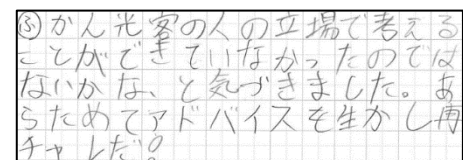 ふかん光客の人の立場で考える
ことができていなかったのでは
ないかな、と気づきました。あ
らためてアドバイスを生かし再
チャレだ!